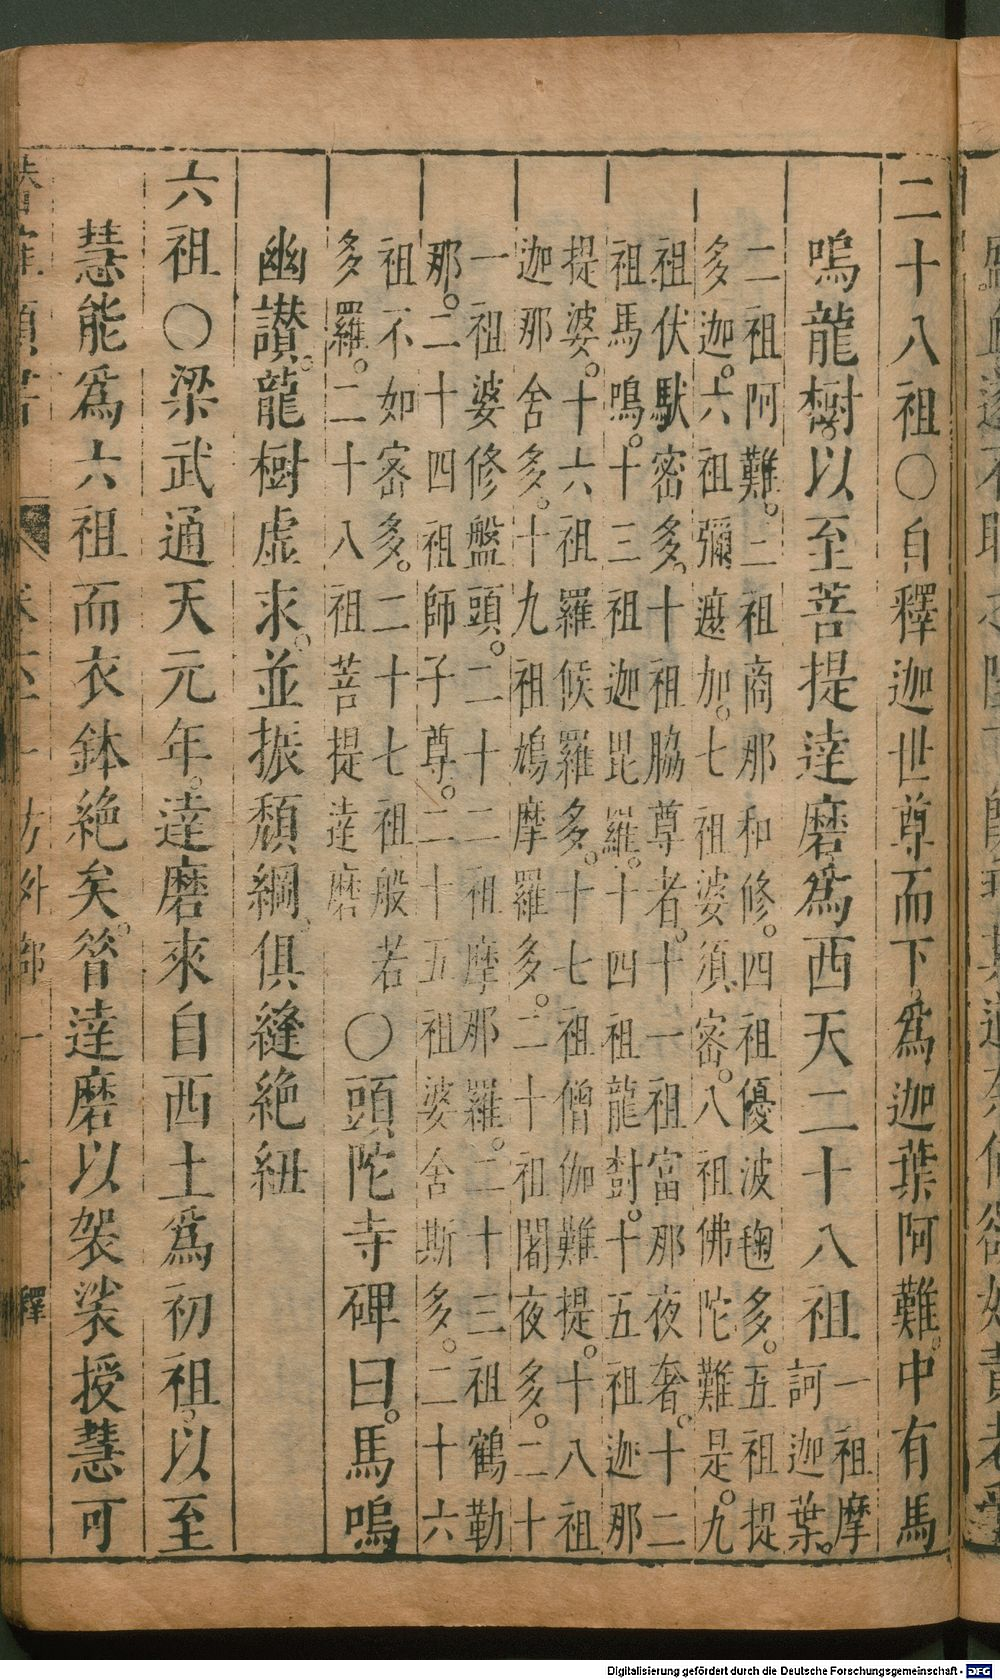 二十八祖〇自釋迦世尊而下。爲迦葉阿難。中有馬
鳴龍樹。以至菩提達磨。爲西天二十八祖
一祖摩
訶迦葉。
二祖阿難。三祖商那和修。四祖優波毱多。五祖提
多迦。六祖彌遮加。七祖婆須密。八祖佛陀難是。九
祖伏馱密多。十祖脇尊者。十一祖富那夜奢。十二
祖馬鳴。十三祖迦毘羅。十四祖龍尌。十五祖迦那
提婆。十六祖羅候羅多。十七祖僧伽難提。十八祖
迦那舍多。十九祖鳩摩羅多。二十祖闍夜多。二十
一祖婆修盤頭。二十二祖摩那羅。二十三祖鶴勒
那。二十四祖師子尊。二十五祖婆舍斯多。二十六
祖不如密多。二十七祖般若
多羅。二十八祖菩提達磨
〇頭陀寺碑曰。馬鳴
幽讃。龍樹虛求。並振頹綱。俱縫絶紐
六祖〇梁武通天元年。達磨來自西土爲初祖。以至
慧能爲六祖而衣鉢絶矣。昝達磨以袈裟授慧可
釋
Digitalisierung gefördert durch die Deutsche Forschungsgemeinschaft - DFG